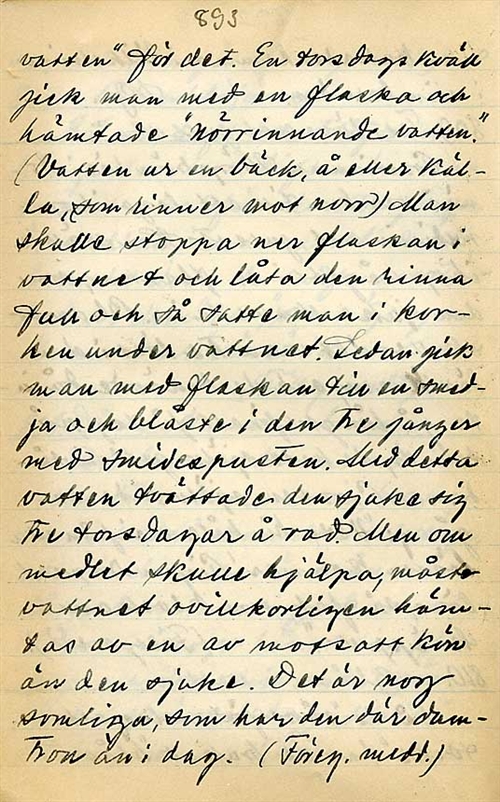 893
vatten" för det. En torsdagskväll
gick man med en flaska och
hämtade "nörrinnande vatten."
(Vatten ur en bäck, å eller käl-
la, som rinner mot norr) Man
skulle stoppa ner flaskan i
vattnet och låta den rinna
full och så satte man i kor-
ken under vattnet. Sedan gick
man med flaskan till en smed-
ja och blåste i den tre gånger
med smidespusten. Med detta
vatten tvättade den sjuke sig
tre torsdagar å rad. Men om
medlet skulle hjälpa, måste
vattnet ovillkorligen häm-
tas av en av motsatt kön
än den sjuke. Det är nog
somliga, som har den där dum-
tron än i dag. (Föreg. medd.)